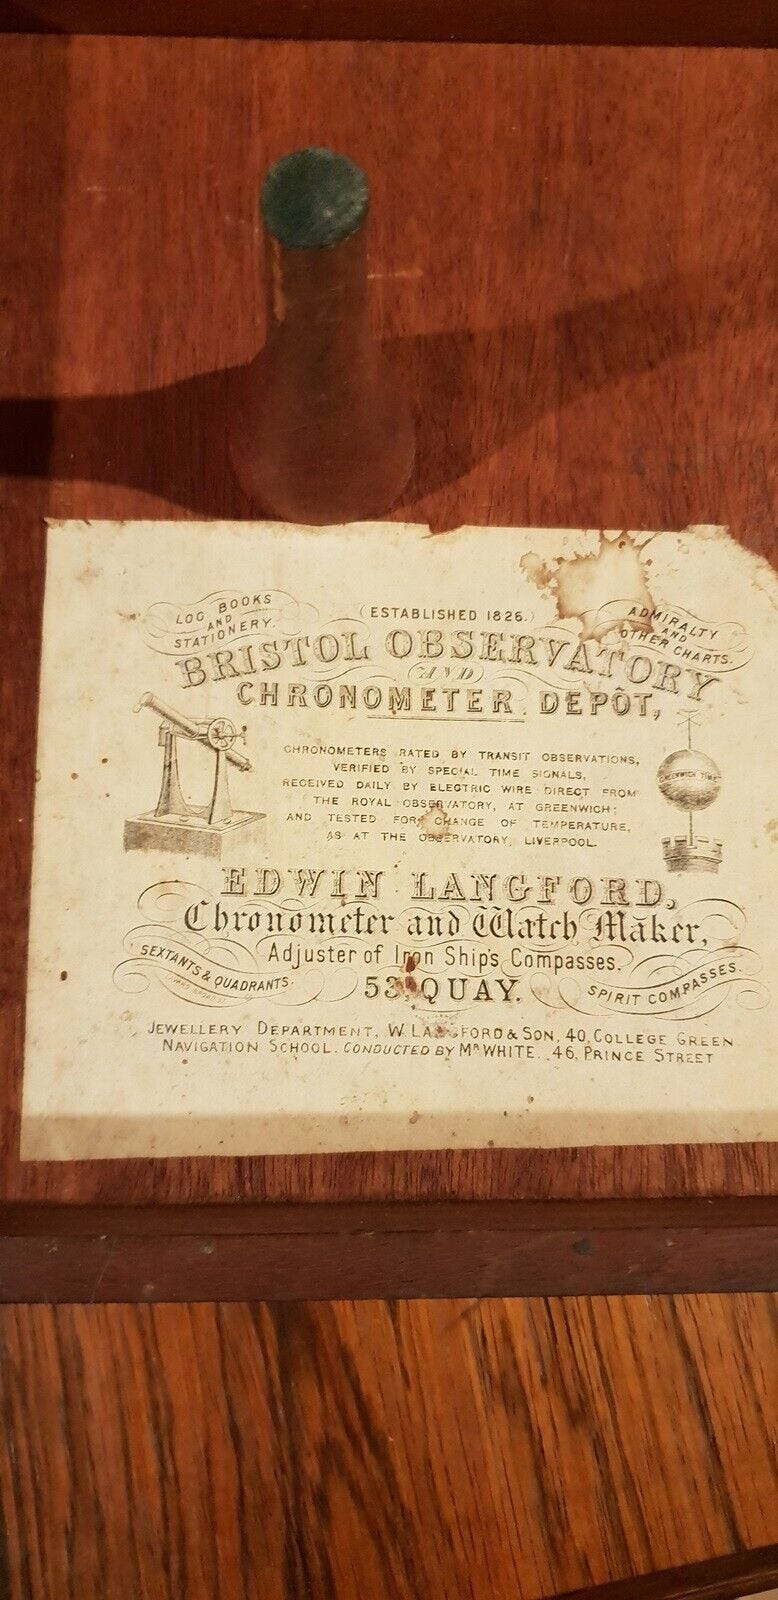 LOG BOOKS
AND
STATIONERY.
(ESTABLISHED 1826.)
ADMIRALTY
AND
OTHER CHARTS.
BRISTOL OBSERVATORY
AND
CHRONOMETER DEPÔT,
CHRONOMETERS RATED BY TRANSIT OBSERVATIONS,
VERIFIED BY SPECIAL TIME SIGNALS,
RECEIVED DAILY BY ELECTRIC WIRE DIRECT FROM
THE ROYAL OBSERVATORY, AT GREENWICH;
AND TESTED FOR CHANGE OF TEMPERATURE,
AS AT THE OBSERVATORY, LIVERPOOL.
GREENWICH TIME
EDWIN LANGFORD,
Chronometer and Watch Maker,
Adjuster of Iron Ship's Compasses.
SEXTANTS & QUADRANTS.
53, QUAY.
SPIRIT COMPASSES.
JEWELLERY DEPARTMENT, W. LANGFORD & SON, 40, COLLEGE GREEN
NAVIGATION SCHOOL. CONDUCTED BY MR WHITE, 46, PRINCE STREET